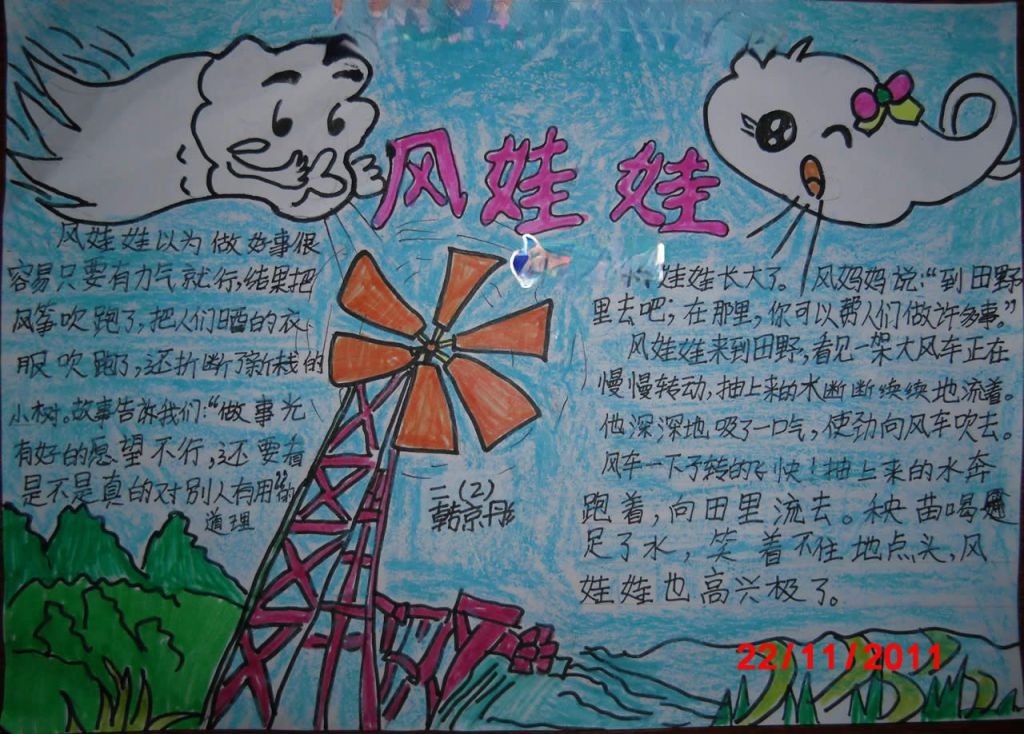 风娃娃
风娃娃以为做好事很
容易只要有力气就行,结果把
风筝吹跑了,把人们晒的衣
服吹跑了,还折断了新栽的
小树。故事告诉我们:“做事光
有好的愿望不行,还要看
是不是真的对别人有用”的
道理
二(2)
韩京丹
娃娃长大了。风妈妈说:“到田野
里去吧,在那里,你可以帮人们做许多事。”
风娃娃来到田野,看见一架大风车正在
慢慢转动,抽上来的水断断续续地流着。
他深深地吸了一口气,使劲向风车吹去。
风车一下子转的快!抽上来的水奔
跑着,向田里流去。秧苗喝
足了水,笑着不住地点头,风
娃娃也高兴极了。
22/11/2011